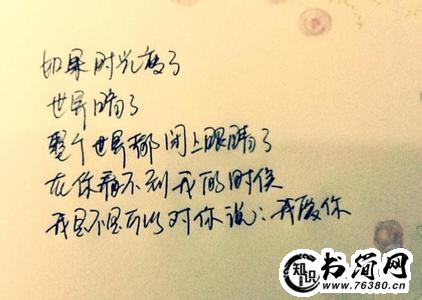 如果时光了
世界暗了
整个世界都闭上眼睛了
在你看不到我的时候
我是不是可以对你说：我爱你
知识 书简网
www.76380.cn